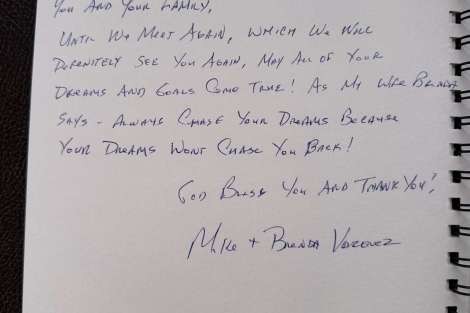 You And Your Family,
Until We Meet Again, Which We Will
Definitely See You Again, May All Of Your
Dreams And Goals Come True! As My Wife Brenda
Says - Always Chase Your Dreams Because
Your Dreams Wont Chase You Back!
God Bless You And Thank You!
Mike + Brenda